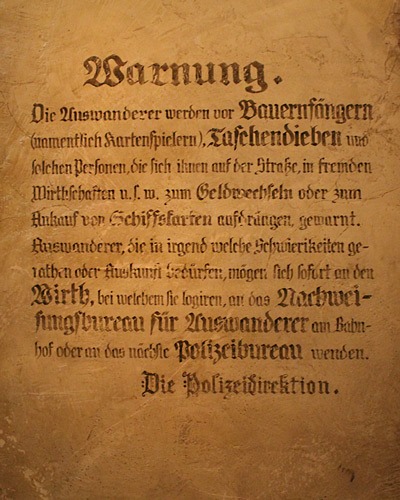 Warnung.
Die Auswanderer werden vor Bauernfängern
(namentlich Kartenspielern), Taschendieben und
solchen Personen, die sich ihnen auf der Straße, in fremden
Wirthschaften u. s. w. zum Geldwechseln oder zum
Ankauf von Schiffskarten aufdrängen, gewarnt.
Auswanderer, die in irgend welche Schwierikeiten ge-
rathen oder Auskunft bedürfen, mögen sich sofort an den
Wirth, bei welchem sie logiren, an das Nachwei-
sungsbureau für Auswanderer am Bahn-
hof oder an das nächste Polizeibureau wenden.
Die Polizeidirektion.